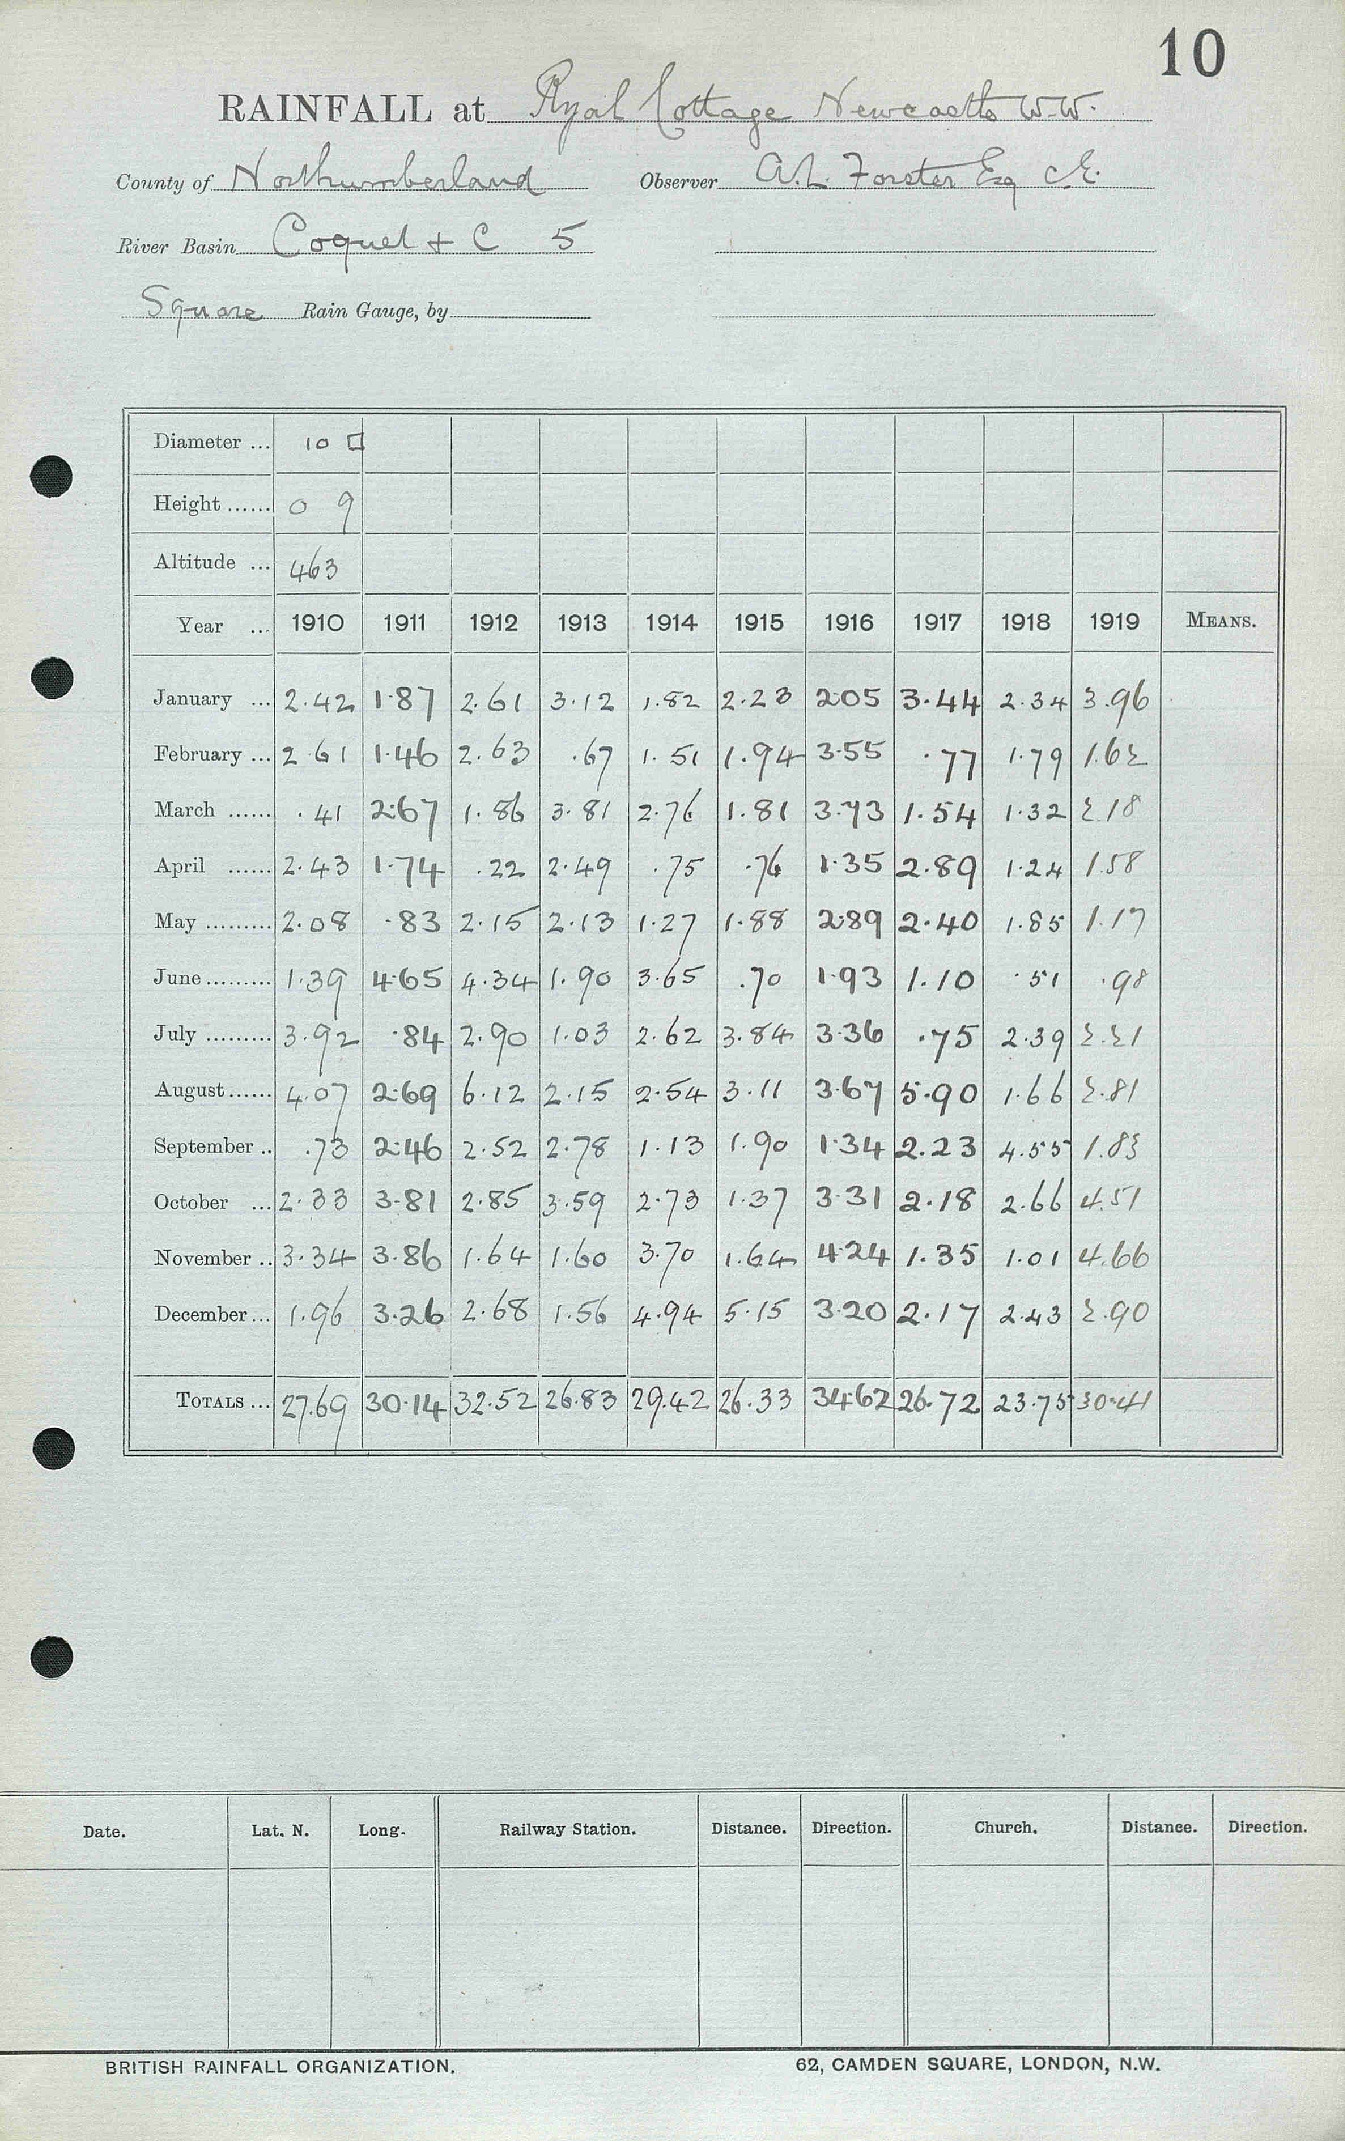 10
RAINFALL at Ryal Cottage Newcastle W.W.
County of Northumberland Observer A.L. Forster Esq C.E.
River Basin Coquet + C 5
Square Rain Gauge, by
Diameter ... 10 □
Height ...... 0 9
Altitude ... 463
Year ... 1910 1911 1912 1913 1914 1915 1916 1917 1918 1919 MEANS.
January ... 2.42 1.87 2.61 3.12 1.82 2.23 2.05 3.44 2.34 3.96
February ... 2.61 1.46 2.63 .67 1.51 1.94 3.55 .77 1.79 1.62
March ...... .41 2.67 1.86 3.81 2.76 1.81 3.73 1.54 1.32 2.18
April ...... 2.43 1.74 .22 2.49 .75 .76 1.35 2.89 1.24 1.58
May ......... 2.08 .83 2.15 2.13 1.27 1.88 2.89 2.40 1.85 1.17
June ......... 1.39 4.65 4.34 1.90 3.65 .70 1.93 1.10 .51 .98
July ......... 3.92 .84 2.90 1.03 2.62 3.84 3.36 .75 2.39 2.21
August ...... 4.07 2.69 6.12 2.15 2.54 3.11 3.67 5.90 1.66 2.81
September .. .73 2.46 2.52 2.78 1.13 1.90 1.34 2.23 4.55 1.83
October ... 2.33 3.81 2.85 3.59 2.73 1.37 3.31 2.18 2.66 4.51
November .. 3.34 3.86 1.64 1.60 3.70 1.64 4.24 1.35 1.01 4.66
December ... 1.96 3.26 2.68 1.56 4.94 5.15 3.20 2.17 2.43 2.90
TOTALS ... 27.69 30.14 32.52 26.83 29.42 26.33 34.62 26.72 23.75 30.41
Date. Lat. N. Long. Railway Station. Distance. Direction. Church. Distance. Direction.
BRITISH RAINFALL ORGANIZATION. 62, CAMDEN SQUARE, LONDON, N.W.